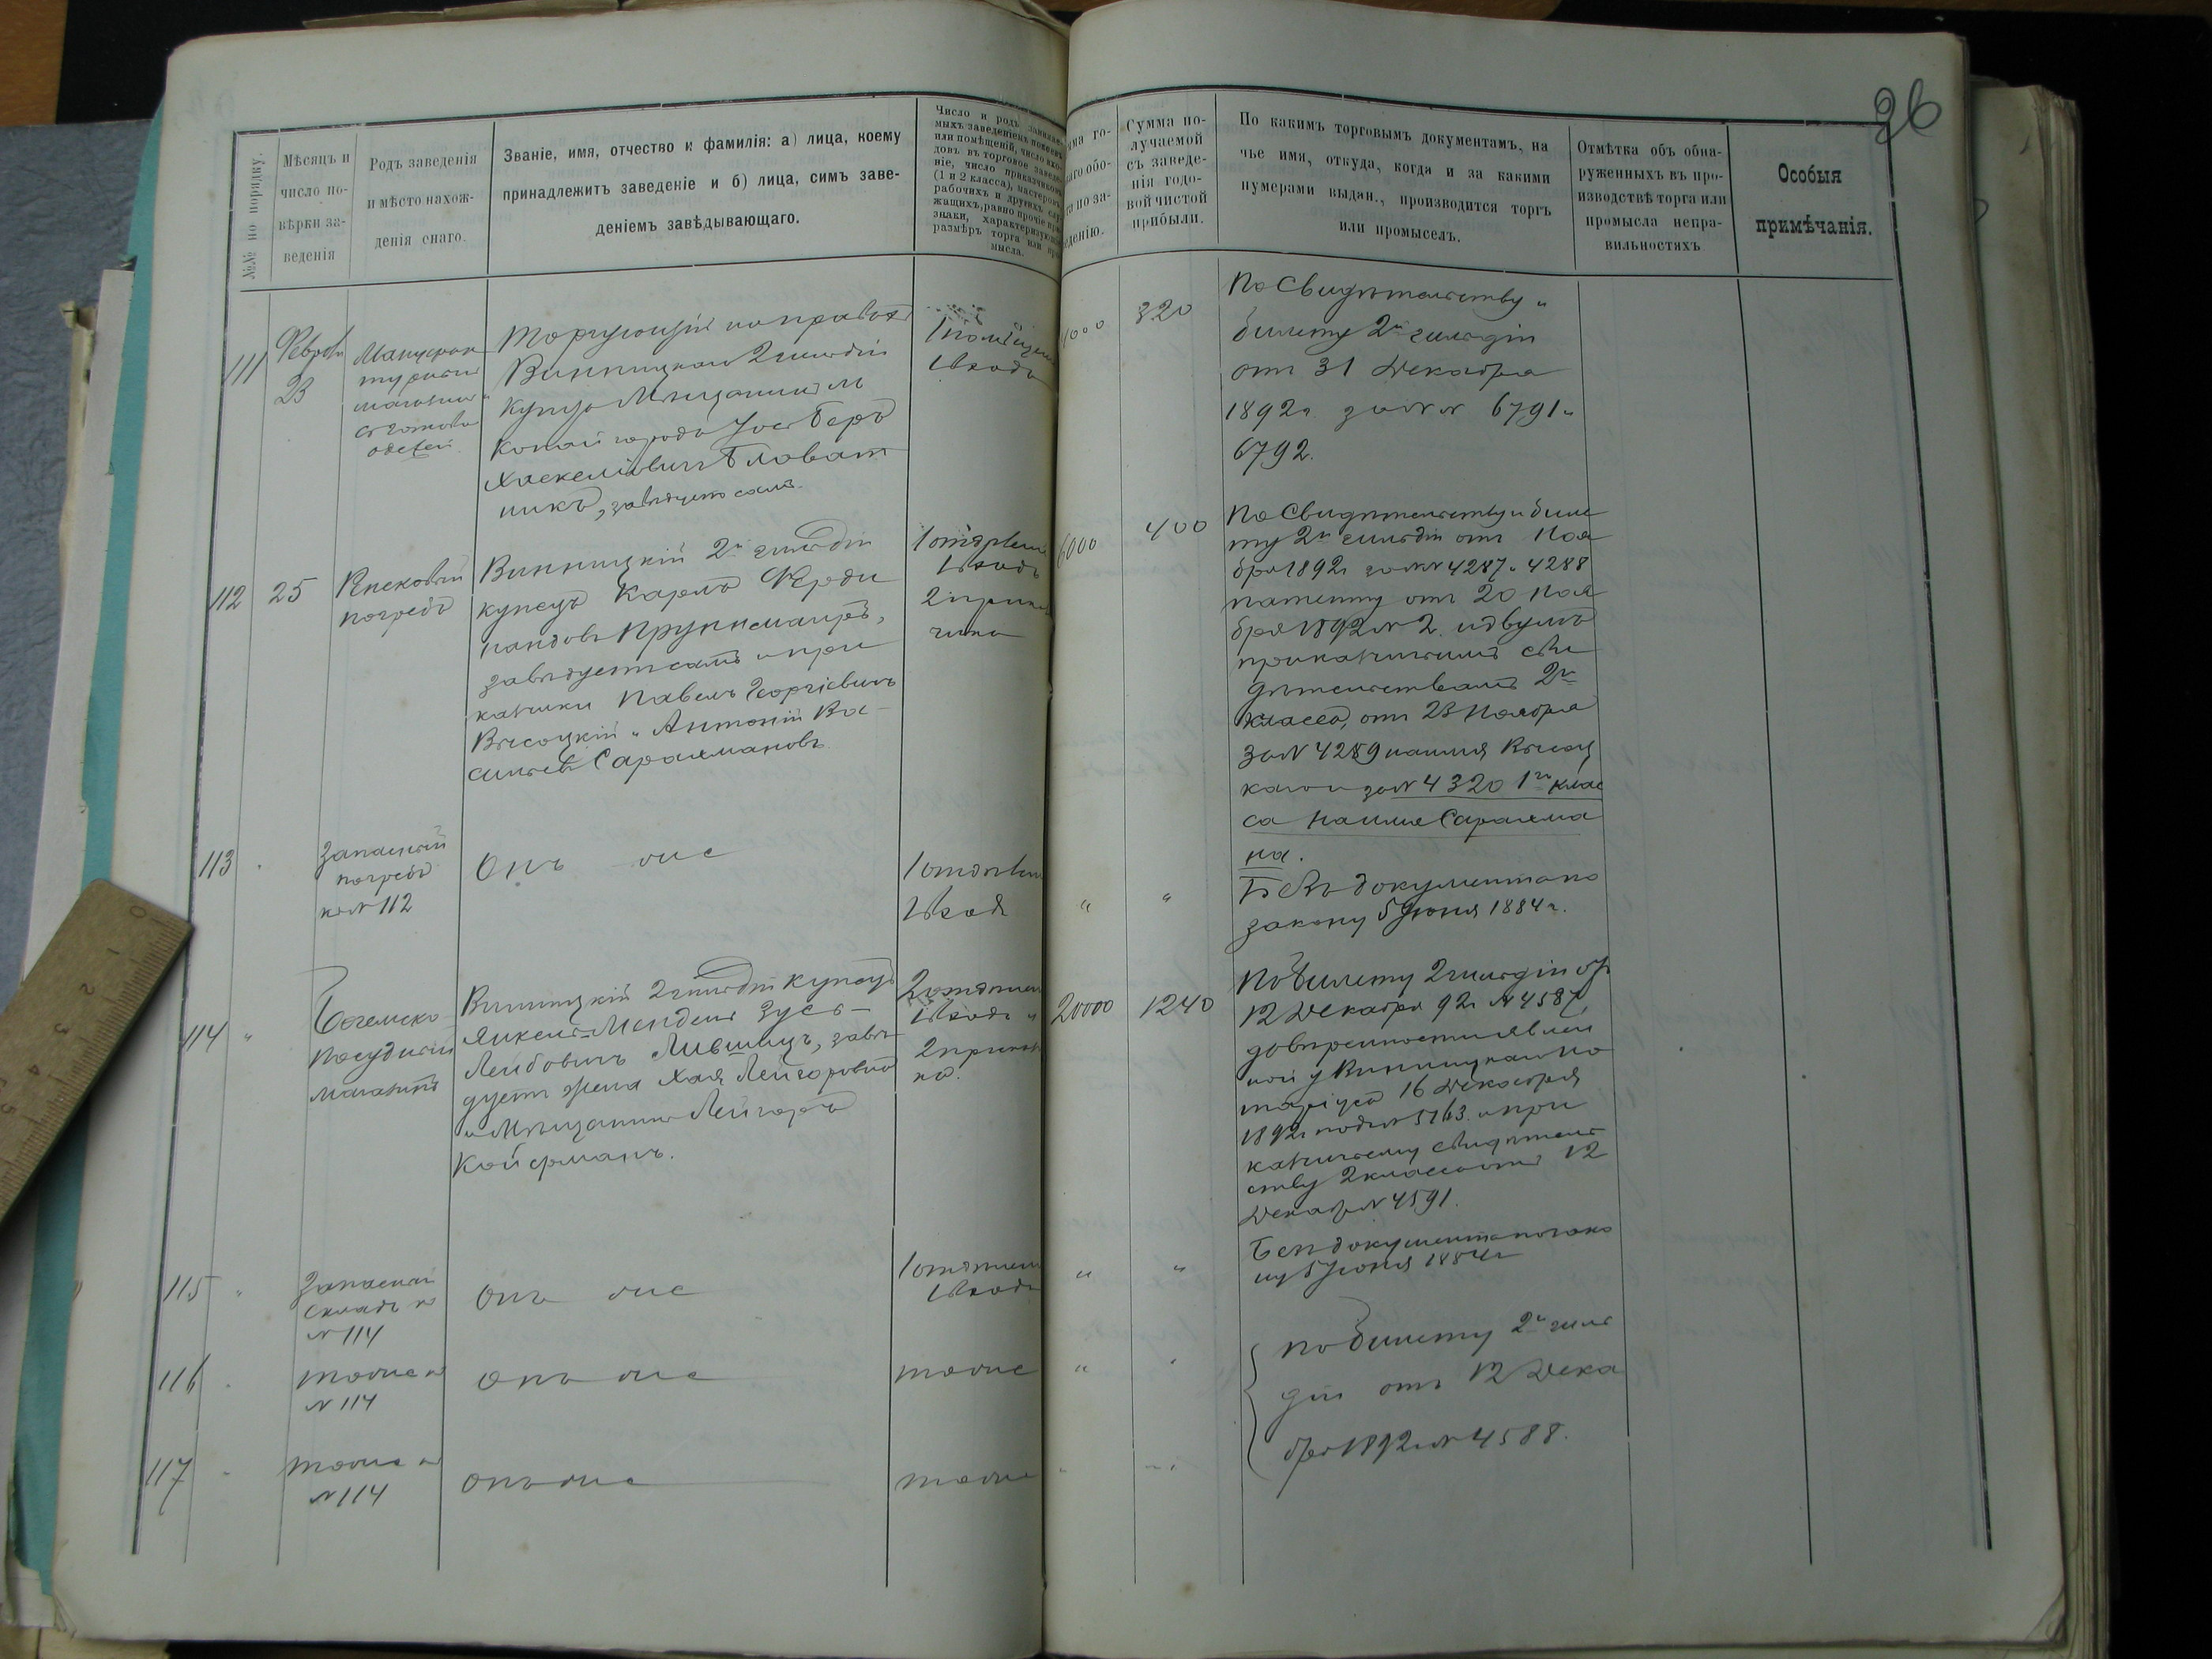 96
№№ по порядку.
Мѣсяцъ и
число по-
вѣрки за-
веденія
Родъ заведенія
и мѣсто нахож-
денія онаго.
Званіе, имя, отчество и фамилія: а) лица, коему
принадлежитъ заведеніе и б) лица, симъ заве-
деніемъ завѣдывающаго.
Число и родъ
мыхъ заведеніемъ
или помѣщеній, число вхо-
довъ въ торговое заведе-
ніе, число приказчиковъ
(1 и 2 класса), мастеровъ
рабочихъ и другихъ слу-
жащихъ, равно прочіе при-
знаки, характеризующіе
размѣръ торга или про-
мысла.
Сумма по-
лучаемой
съ заведе-
нія годо-
вой чистой
прибыли.
По какимъ торговымъ документамъ, на
чье имя, откуда, когда и за какими
нумерами выдан., производится торгъ
или промыселъ.
Отмѣтка объ обна-
руженныхъ въ про-
изводствѣ торга или
промысла непра-
вильностяхъ
Особыя
примѣчанія.
111
23
Мануфак
турный
магазинъ
одежей
Торгующій на правахъ
Винницкаго 2 гильдіи
купца Мѣщанинъ
города Хаскеліовичъ Гловат
никъ, завѣдуетъ самъ
1 помѣщен
1 входъ
320
По Свидѣтельству и
билету 2й гильдіи
отъ 31 Декабря
1892 г за №№ 6791 и
6792.
112
25
Ренсковый
погребъ
Винницкій 2й гильдіи
купецъ Карлъ Ферди
нандовъ
завѣдуетъ самъ и при
кащики Павелъ Георгіевичъ
Высоцкій и Антоній Ва-
сильевъ Сарахмановъ
1 отдѣлен
1 входъ
2 прика
щика
6000
400
По Свидѣтельству и биле
ту 2й гильдіи отъ Ноя
бря 1892 г за №№ 4287 и 4288
патенту отъ 20 Ноя
бря 1892 № 2. и двумъ
приказчичьимъ сви
дѣтельствамъ 2го
класса, отъ 23 Ноября
за № 4289 на имя Высоц
каго и за № 4320 1го клас
са на имя Сарахма
на.
113
Запасный
погребъ
къ № 112
Онъ же
1 отдѣлен
1 входъ
"
"
Безъ документа по
закону 5 Іюня 1884 г.
114
"
Богемско-
Посудный
магазинъ
Винницкій 2 гильдіи купецъ
Янкель-Мендель Зусь-
Лейбовичъ Лившицъ, завѣ-
дуетъ жена Хая Лейзоровна
и Мѣщанинъ
Койфманъ.
2 отдѣлен
1 входъ и
2 прикащ
ка.
20000
1240
По билету 2 гильдіи отъ
12 Декабря 92 г № 4587
довѣренности явлен
ной у Винницкаго Но
таріуса 16 Декабря
1892 г подъ № 5163 и при
казчичьему свидѣтель
ству 2 класса отъ 12
Декаб. № 4591.
115
"
Запасный
Складъ къ
№ 114
Онъ же
1 отдѣлен
1 входъ
"
"
Безъ документа по зако
ну 5 Іюня 1884 г
116
тоже къ
№ 114
Онъ же
тоже
"
"
По билету 2й гиль
діи отъ 12 Дека
бря 1892 г № 4588.
117
тоже къ
№ 114
Онъ же
тоже